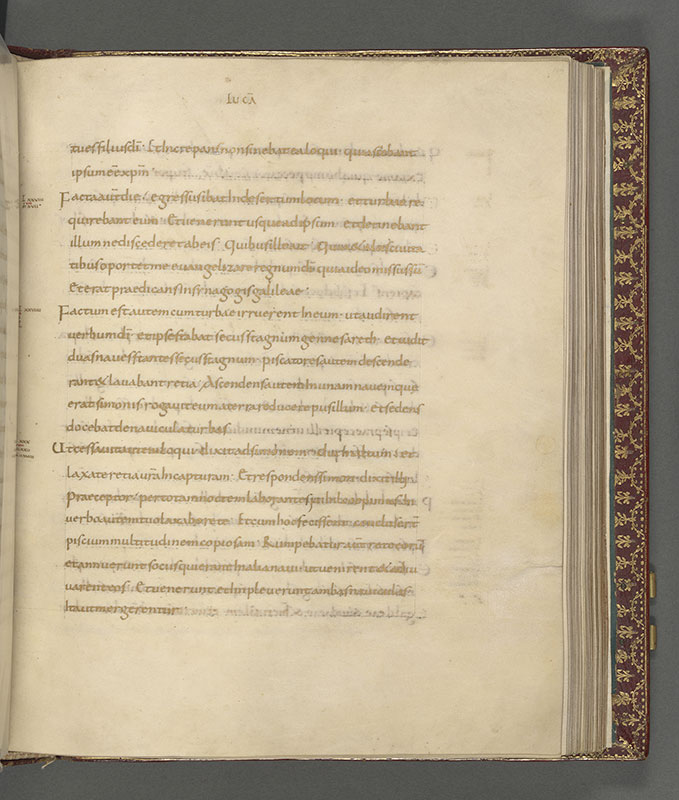 LUCĀ
tuesfiliusdī Etincrepansnonsinebatealoqui quiasciebant
ipsumeēxpm̄
Factaaut̄die egressusibatindesertumlocum etturbaere
quirebanteum Etuenerunt usqueadipsum etdetinebant
illumnediscederetabeis Quibusilleait Quia ciuita
tibusoportetmeeuangelizareregnumdī quiaideomissussū
Eteratpraedicansinsynagogisgalileae
Factumestautemcumturbaeirruerentineum utaudirent
uerbumdī etipsestabat secusstagnumgennesareth etuidit
duasnauesstantessecusstagnum piscatoresautemdescende
rant&lauabantretia Ascendensauteminunamnauemque
eratsimonis rogauiteumaterrareducerepusillum etsedens
docebatdenauiculaturbas
Utcessauitautemloqui dixitadsimonem ducinaltum et
laxateretiaur̄aincapturam Etrespondenssimon dixitilli
Praeceptor pertotamnoctemlaborantesnihilcepimus in
uerboautemtuolaxaborete Etcumhocfecissent conclusert̄
pisciummultitudinemcopiosam Rumpebaturaut̄reteeorū
etannueruntsociisquierantinalianaui utuenirent&adiu
uarenteos Etueneruntetimpleueruntambasnauiculas
itautmergerentur